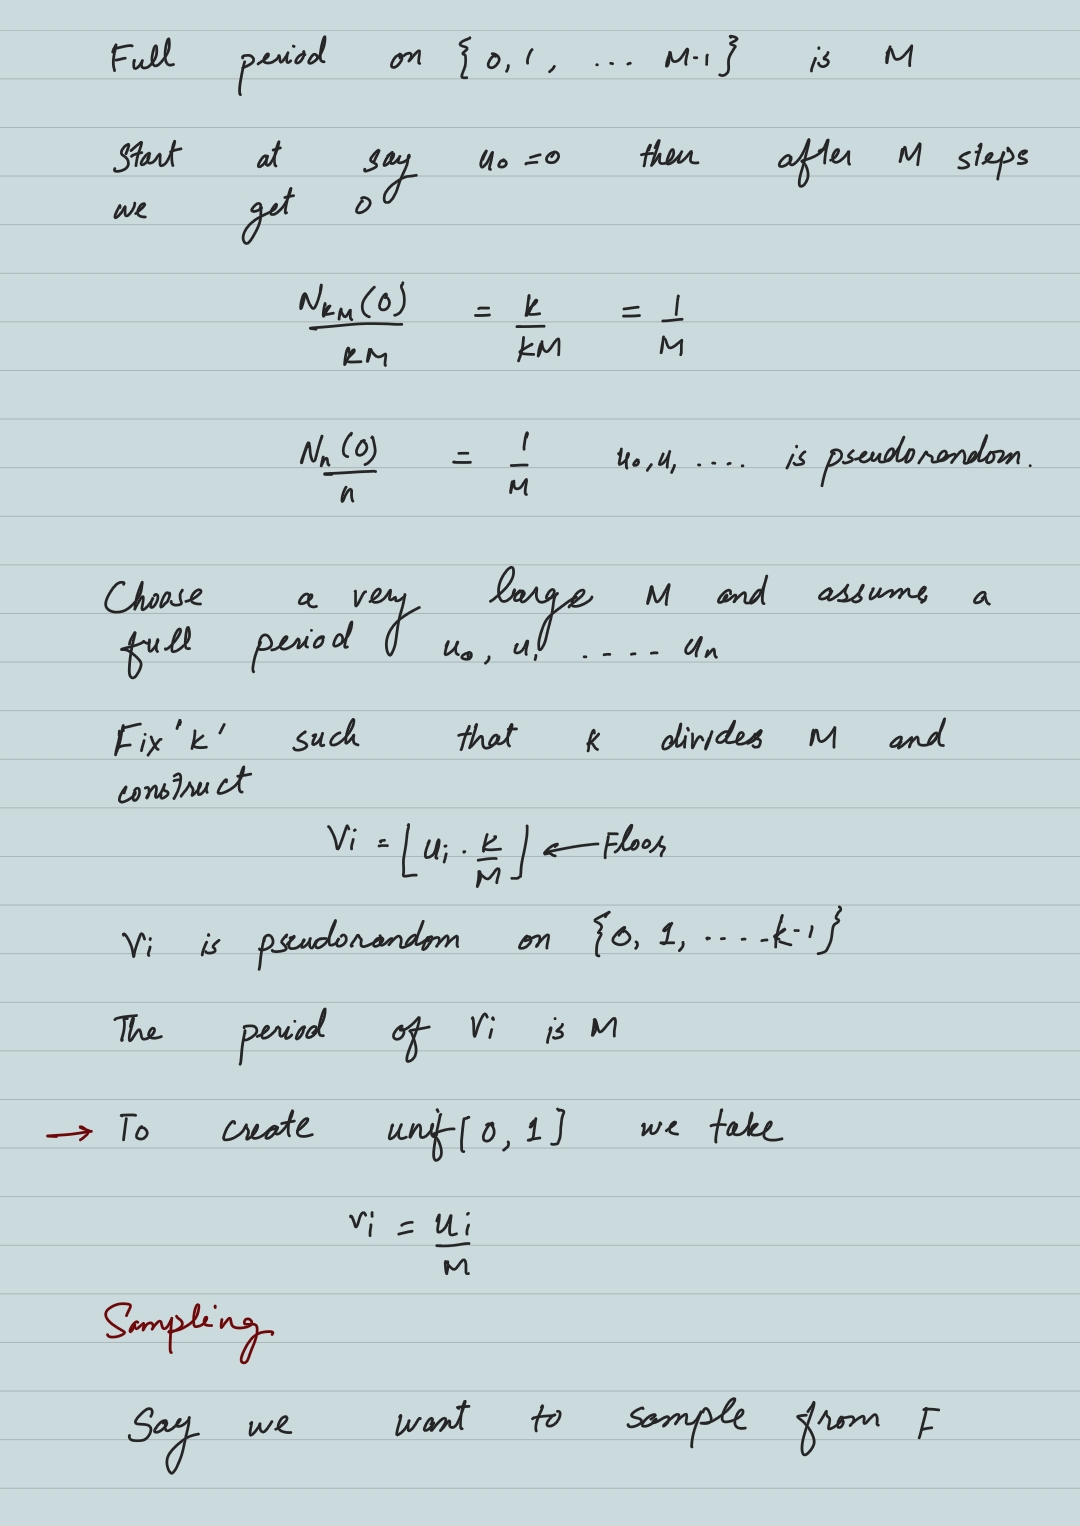 Full period on {0, 1, ... M-1} is M
Start at say u₀ = 0 then after M steps
we get 0
N_{kM}(0)/kM = k/kM = 1/M
N_n(0)/n = 1/M u₀, u₁ .... is pseudorandom.
Choose a very large M and assume a
full period u₀, u₁ ..... uₙ
Fix 'k' such that k divides M and
construct
Vᵢ = ⌊uᵢ · k/M⌋ ← Floor
Vᵢ is pseudorandom on {0, 1, .....k-1}
The period of Vᵢ is M
→ To create unif[0, 1] we take
rᵢ = uᵢ/M
Sampling
Say we want to sample from F